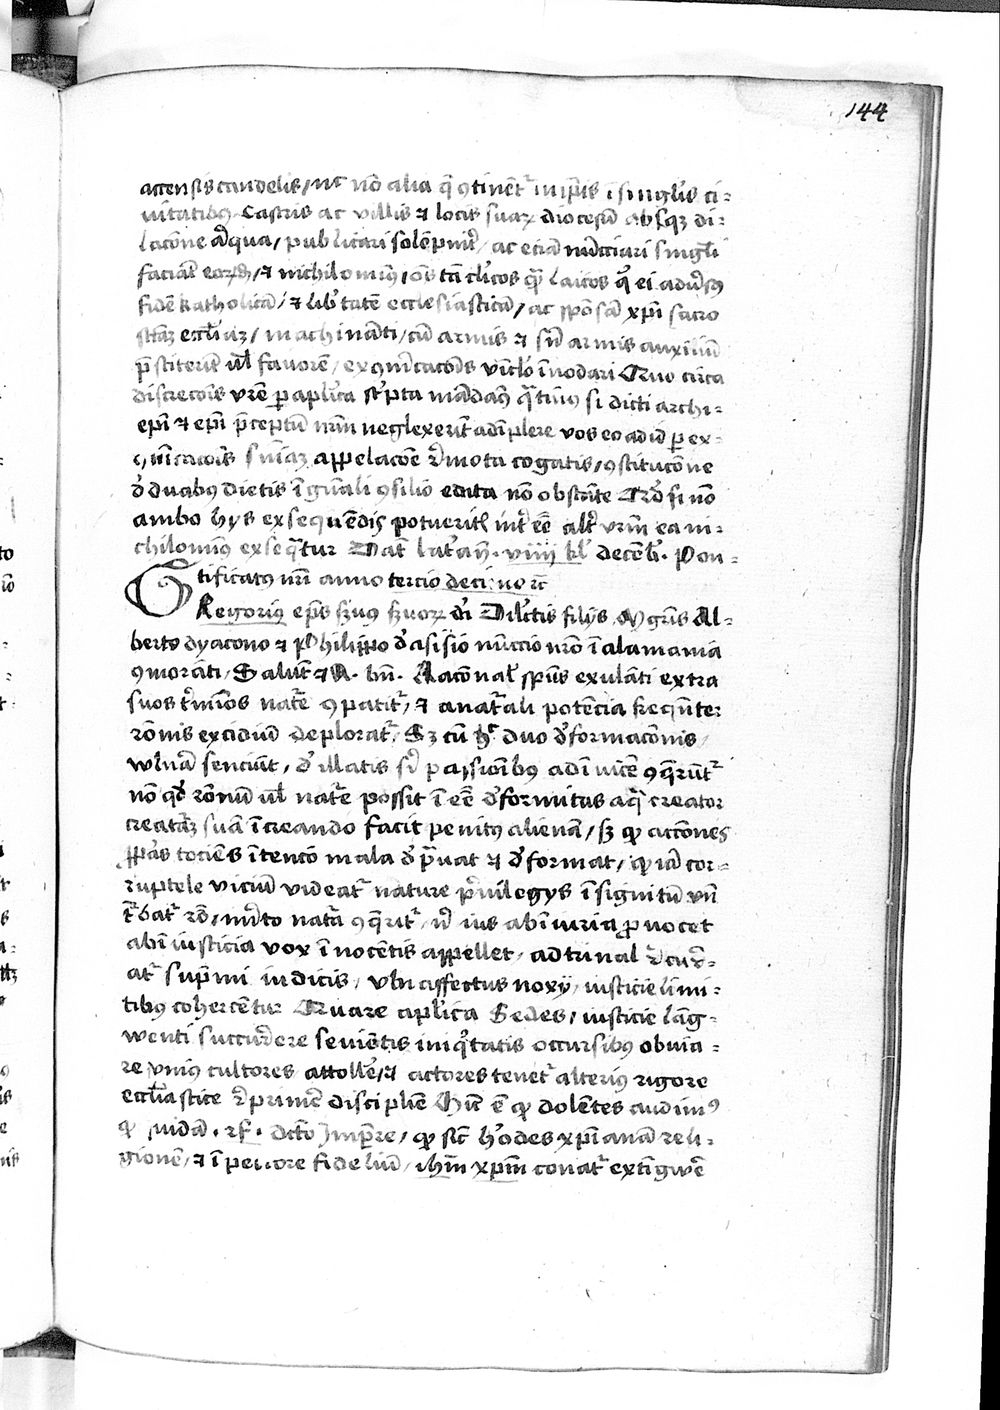 144
accensis candelis / nc̄ nō alia q̄ ꝯtinēt᷑ in ip̄is ī singul̓is ci-
uitatibꝰ Castris ac villis ⁊ locis suaꝝ diocesū absqꝫ di-
lacōne aliqua / publicari solēpnit̓ / ac eciā nūcciari singl̄i
faciāt eorꝫdē / ⁊ nichilominꝰ / oēs tā cl̓icos qꝫ laicos q̓ ei adu̓sꝰ
fidē katholicā / ⁊ lib̓tatē ecclesiasticā / ac spōsā xp̄i sacro
sctāꝫ eccl̓iaꝫ / machināti / cū armis ⁊ sn̄ armis auxiliū
p̄stiterūt ul̓ fauorē / excōicacōis vīcl̓o īnodari Quo circa
discrecōi vr̄e p aplica sc̓pta mādaꝰ q̄tinꝰ si dicti archi-
ep̄i ⁊ ep̄i p̄ceptū nr̄m neglexerīt adīplere vos eo adiu p ex-
cōicacōis sn̄iaꝫ appelacōe r̓mota cogatis / ꝯstitucōne
d̓ duabꝰ dietis ī gn̄ali ꝯsilio edita nō obstāte Qd̓ si nō
ambo hys exsequēdis potuerit̓ int̓eē alt̓ vr̄m ea ni-
chilominꝰ exseq̄tur Dat̄ lat̓an̄ . viiij kl̓ decēb̓ . Pon-
tificatꝰ nr̄i anno tercio deci: no rc̄
Gregoriꝰ ep̄s s̓uꝰ s̓uoꝝ d̓i Dilc̓tis filijs Mgr̄is Al-
berto dyacono ⁊ Philippo d̓ asisio nūccio nr̄o ī alamania
ꝯmorāti / Salut̄ ⁊ A . bn̄ . Racōnal̓ sp̄us exulāti extra
suos t̓mīos nat̄e ꝯpatit᷑ / ⁊ anat̓ali potēcia freqūter
rōnis excidiū deplorat᷑ / Sꝫ cū h̓ duo d̓formacōnis /
wlnā senciāt / d̓ illatis s̓ passionibꝰ adīuicē ꝯq̄rūt᷑
nō qd̓ rōnū ul̓ nat̄e possit ī eē d̓formitas aq̓ creator
creatāꝫ suā ī creando facit penitꝰ alienā / sꝫ qꝫ accōnes
ꝓp̄as tociēs ītencō mala d̓p̄uat ⁊ d̓format / qꝫ iā cor-
ruptele viciū videat᷑ nature p̓uilegys īsignitū vn̄
t̄batᷓ rō / m̓ito natā ꝯq̄rit᷑ / n̄ ius ab īiuria ꝓuocet
ab īiusticia vox īnocētis appellet / ad tūnal r̓cur̓-
at᷑ sup̄mi iudicis / vbi affectus noxy / iusticie limi-
tibꝰ cohercētur Quare aplica Sedes / iusticie lāg-
wenti succur̓ere seuiētis iniq̓tatis occursibꝰ obuia-
re vniꝰ cultores attoll̓e / ⁊ actores tenet᷑ alteriꝰ rigore
eccl̓iastice r̓primē disciplīe Hīc ē qꝫ dolētes audiuimꝰ
qꝫ quidā . rf̄ . dc̄to Imp̄re / qꝫ sic̄ h̓odes xp̄i anā reli-
gionē / ⁊ ī pectore fideliū / ih̄m xp̄m conat᷑ extīgwē